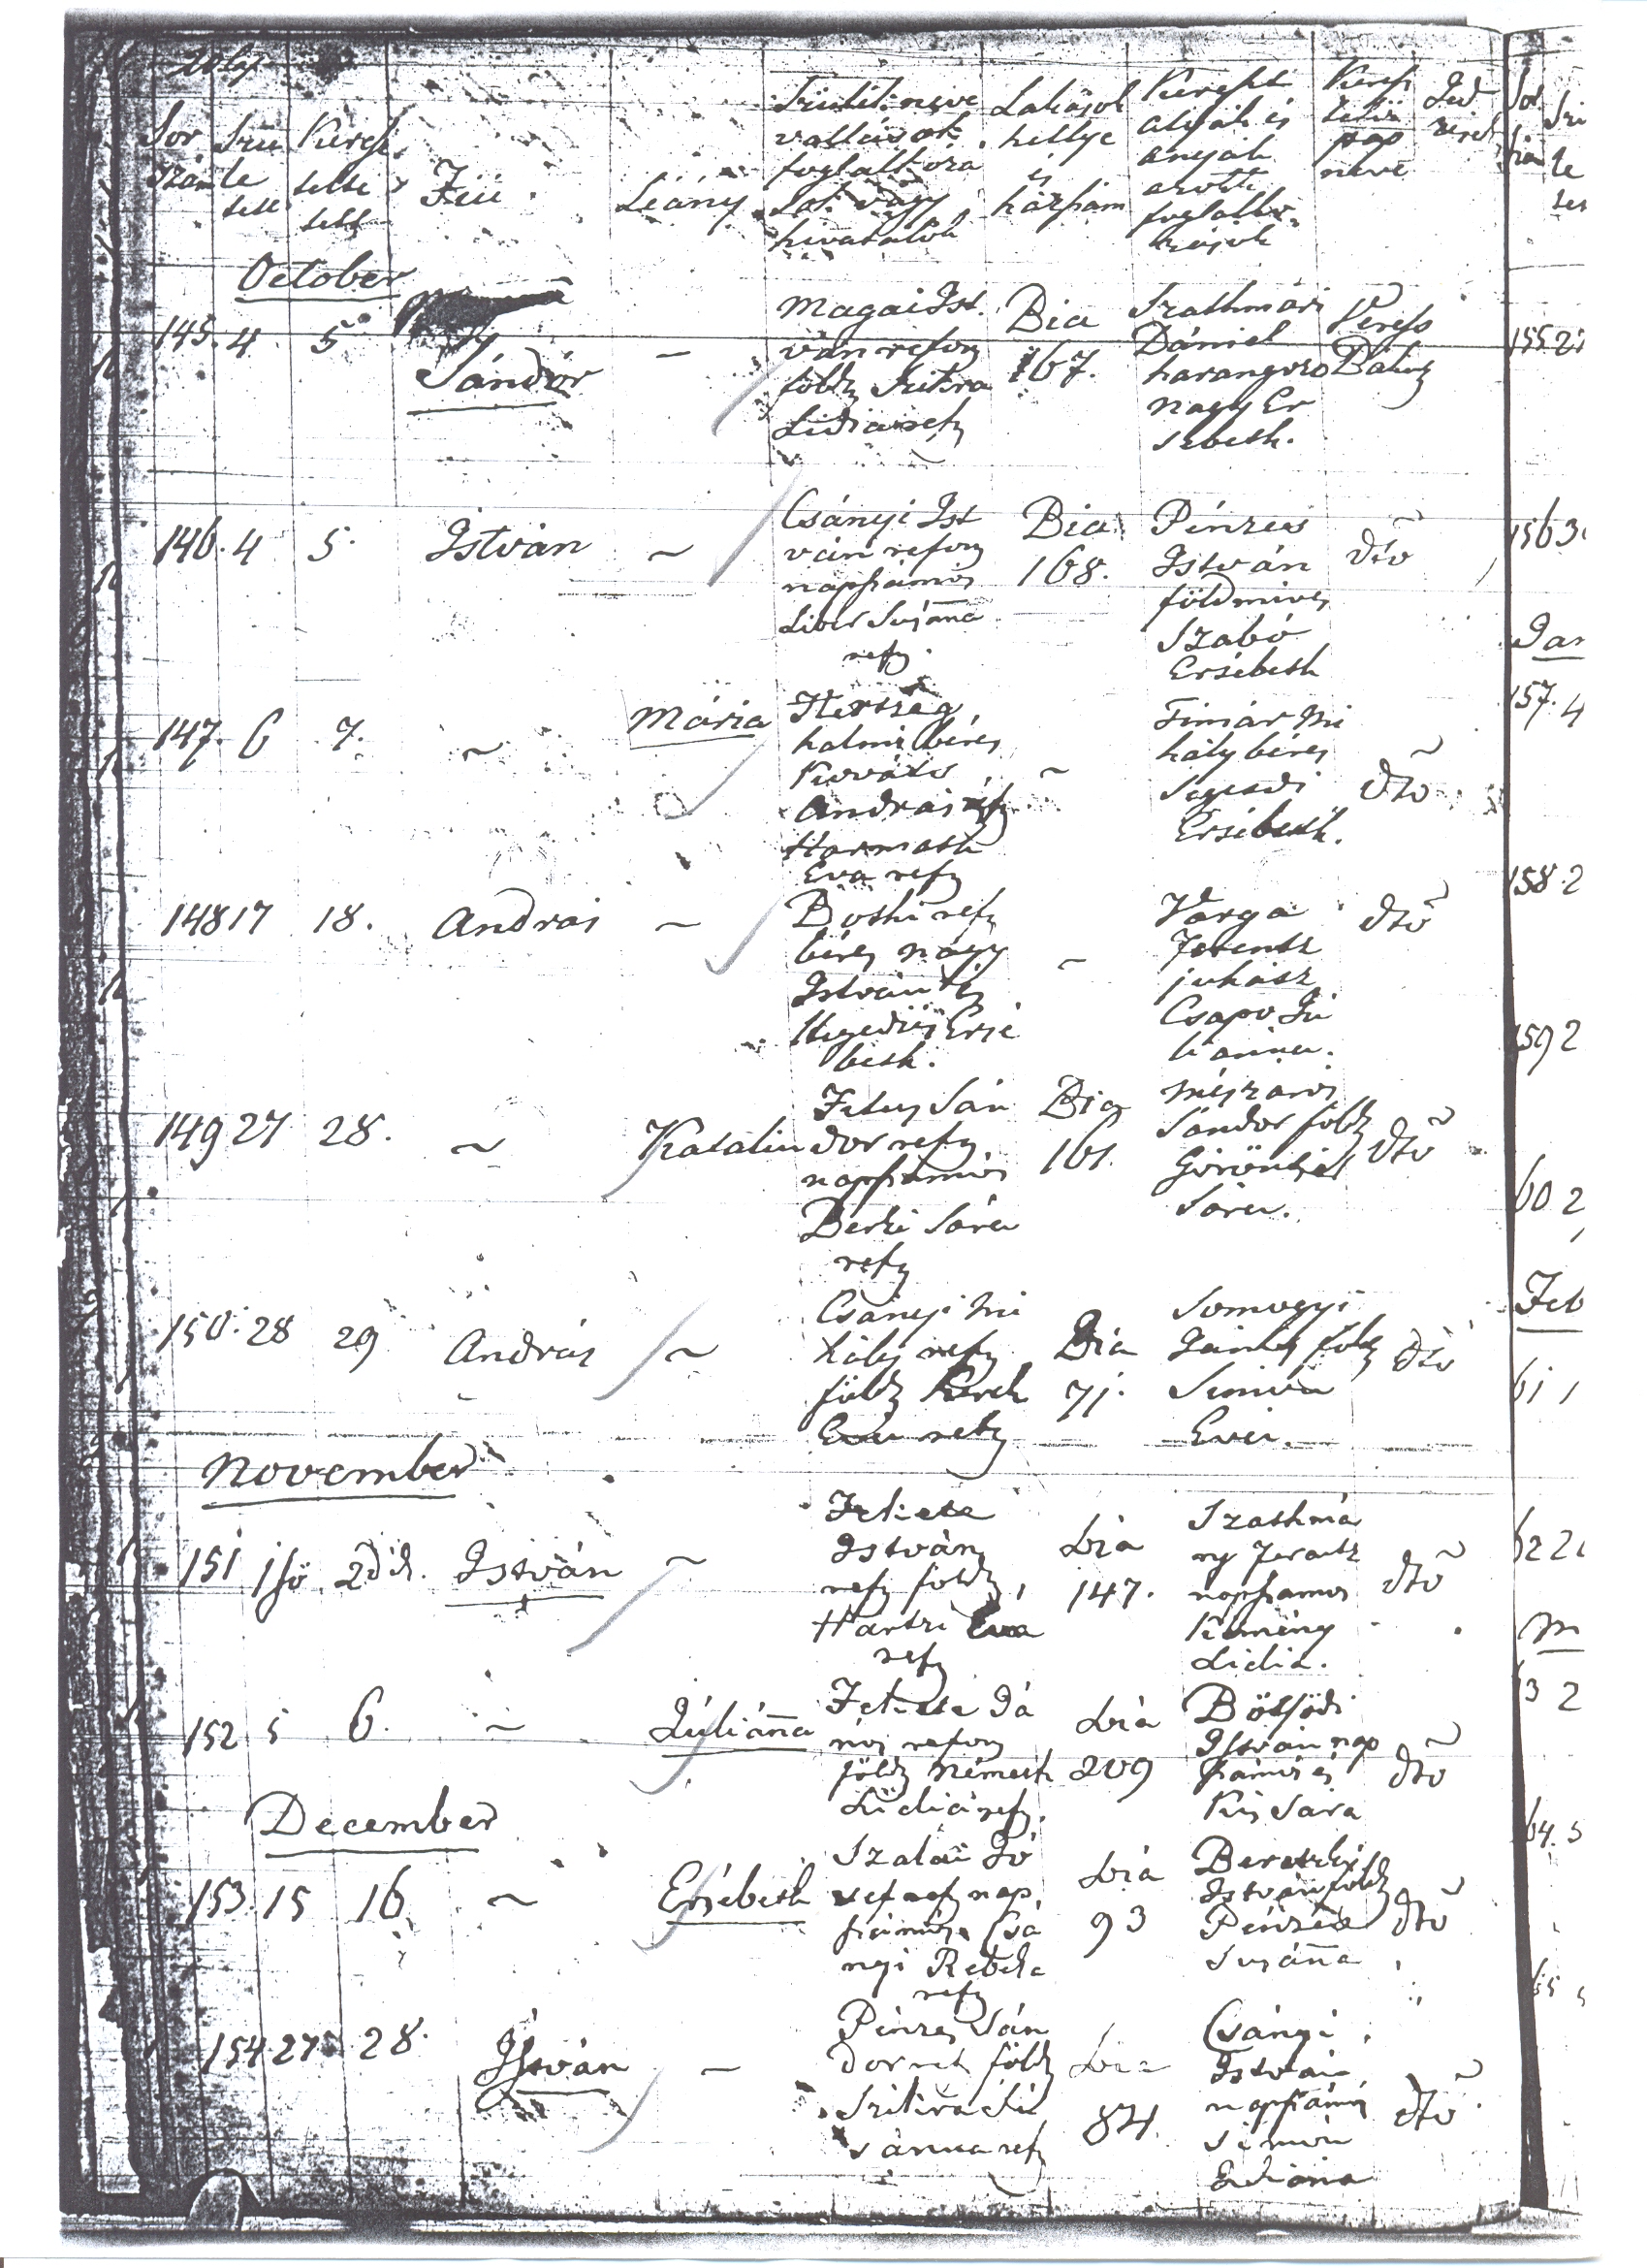 Sor száma
Szü lete tett
Kereszt teltetett
Fiú
Leány
Szüléik neve
vallások
foglalkozá
sok vagy
hivatalok
Lakások
hellye
és
házszám
Kereszt
atyák és
anyák
azok
foglalko-
zásoik
Keresz
telő
pap
neve
October
145. 4 5 Sándor ~
Magai Ist.
ván reform
földm Szikra
Lidia ref
Bia
167.
Szathmári
Dániel
harangozo
Nagy Er
sebeth.
Veress
Bálint
146. 4 5. István ~
Csányi Ist
ván reform
napszámos
Liber Susanna
ref.
Bia
168.
Pénzes
István
földmives
Szabó
Ersébeth
dto
147. 6 7. ~ Mária
Hertzeg
halmi béres
Kováts
András ref
Harmath
Eva ref
~
Timár Mi
hály béres
Segesdi
Ersébeth.
dto
148 17 18. András ~
Bothi ref
béres Nagy
István
Hegedüs Ersé
beth.
~
Varga
Ferentz
juhász
Csapo Ju
liánna.
dto
149 27 28. ~ Katalin
Fetes Sán
dor ref
napszámos
Berki Sára
ref
Bia
161.
Mészáros
Sándor földm
Göröntsér
Sára.
dto
150. 28 29 András ~
Csányi Mi
hály ref
földm Kerek
Eva ref
Bia
71.
Somogyi
János földm
Simon
Eva.
dto
November
151 1ső 2dik. István ~
Fekete
István
ref földm,
Hartzi Eva
ref
Bia
147.
Szathmá
ry Ferentz
napszamos
Kemény
Lidia.
dto
152 5 6. ~ Juliánna
Fekete Já
nos reform
földm Németh
Lidia ref.
Bia
209
Bötsödi
István nap
számos és
Kis Sara
dto
December
153. 15 16 ~ Ersébeth
Szalai Jó
sef ref nap,
számos Csá
nyi Rebeka
ref
Bia
93
Beretzki
István földm
Pénzes
Susánna
dto
154 27 28. István ~
Pénzes Sán
dor ref földm
Szikra Su
sánna ref
Bia
84.
Csányi
István
napszámos
Simon
Juliána
dto